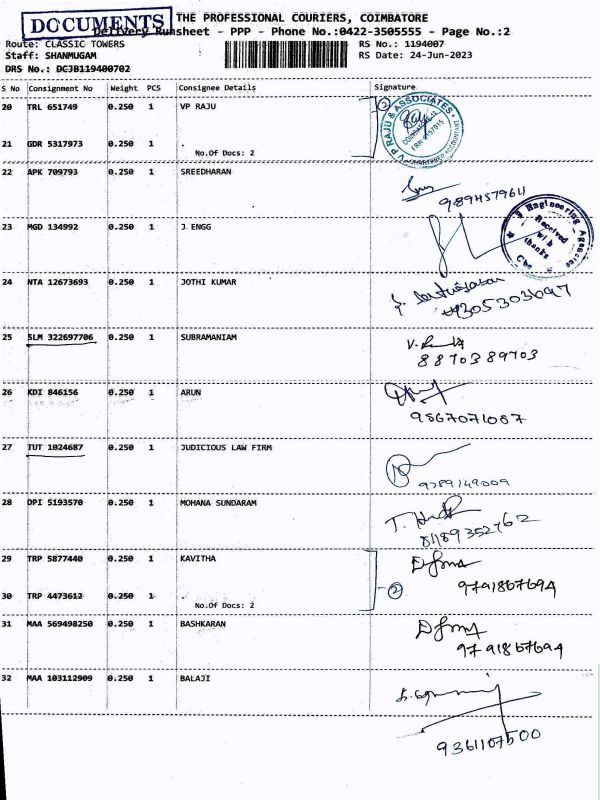 DOCUMENTS
THE PROFESSIONAL COURIERS, COIMBATORE
Delivery Runsheet - PPP - Phone No.:0422-3505555 - Page No.:2
Route: CLASSIC TOWERS RS No.: 1194007
Staff: SHANMUGAM RS Date: 24-Jun-2023
DRS No.: DCJB119400702
S No Consignment No Weight PCS Consignee Details Signature
20 TRL 651749 0.250 1 VP RAJU
2
V P RAJU & ASSOCIATES
CHARTERED ACCOUNTANT
21 GDR 5317973 0.250 1 .
No.Of Docs: 2
22 APK 709793 0.250 1 SREEDHARAN
9894579611
23 MGD 134992 0.250 1 J ENGG
J Engineering Agencies
Received with thanks
Cbe
24 NTA 12673693 0.250 1 JOTHI KUMAR
25 SLM 322697706 0.250 1 SUBRAMANIAM
8870389703
26 KDI 846156 0.250 1 ARUN
27 TUT 1024687 0.250 1 JUDICIOUS LAW FIRM
9789149009
28 DPI 5193570 0.250 1 MOHANA SUNDARAM
29 TRP 5877440 0.250 1 KAVITHA
9791867694
2
30 TRP 4473612 0.250 1 .
No.Of Docs: 2
31 MAA 569498250 0.250 1 BASHKARAN
9791867694
32 MAA 103112909 0.250 1 BALAJI
9361107500